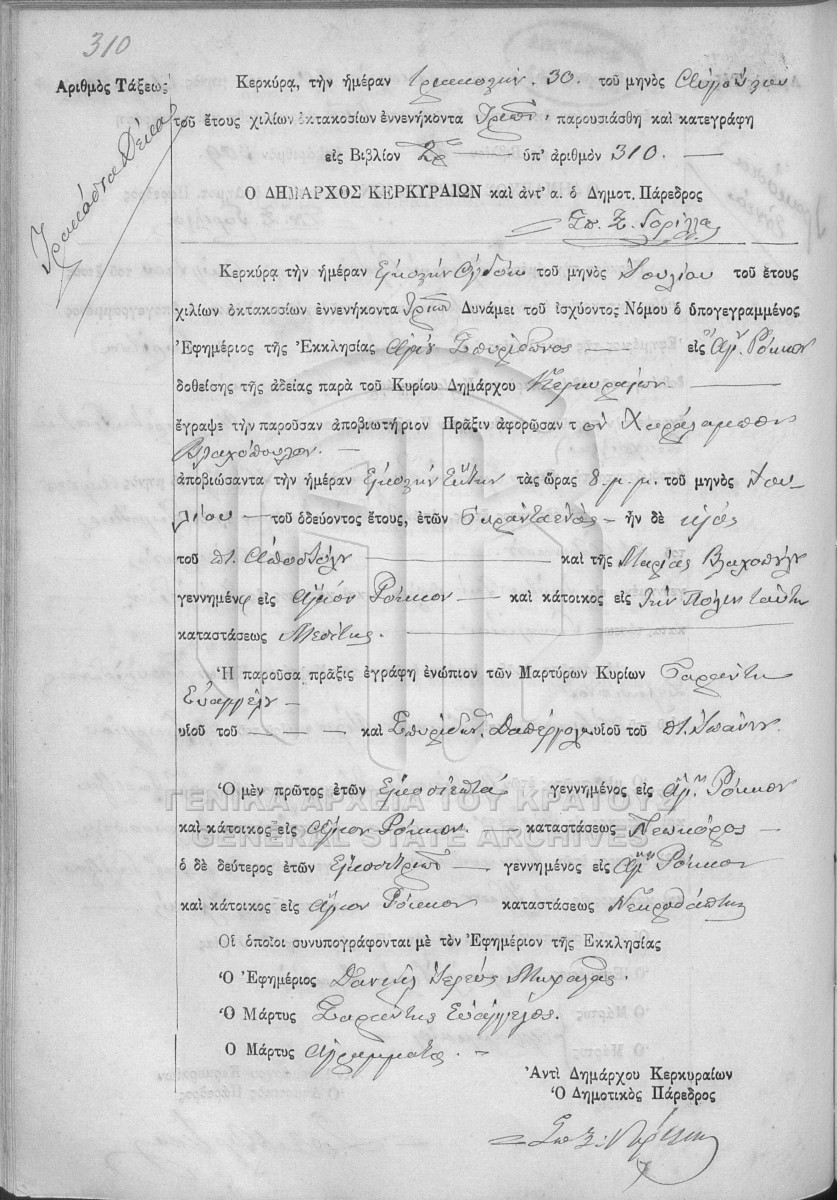 310
Ἀριθμὸς Τάξεως
Τριακόσια Δέκα
Κερκύρᾳ, τὴν ἡμέραν Τριακοστὴν 30 τοῦ μηνὸς
τοῦ ἔτους χιλίων ὀκτακοσίων ἐννενήκοντα Τρία, παρουσιάσθη καὶ κατεγράφη
εἰς Βιβλίον ὑπ' ἀριθμὸν 310.
Ο ΔΗΜΑΡΧΟΣ ΚΕΡΚΥΡΑΙΩΝ καὶ ἀντ' α. ὁ Δημοτ. Πάρεδρος
Σπ. Ξ.
Κερκύρᾳ τὴν ἡμέραν Εἰκοστὴν Ὀγδόην τοῦ μηνὸς Ἰουλίου τοῦ ἔτους
χιλίων ὀκτακοσίων ἐννενήκοντα Τρία Δυνάμει τοῦ ἰσχύοντος Νόμου ὁ ὑπογεγραμμένος
Ἐφημέριος τῆς Ἐκκλησίας Ἁγίου Σπυρίδωνος εἰς Ἅγ. Ρόκκον
δοθείσης τῆς ἀδείας παρὰ τοῦ Κυρίου Δημάρχου Κερκυραίων
ἔγραψε τὴν παροῦσαν ἀποβιωτήριον Πρᾶξιν ἀφορῶσαν τ ὸν Χαράλαμπον
Βλαχόπουλον.
ἀποβιώσαντα τὴν ἡμέραν Εἰκοστὴν Ἕκτην τὰς ὥρας 8 μ. μ. τοῦ μηνὸς Ἰου
λίου τοῦ ὁδεύοντος ἔτους, ἐτῶν Σαράντα ἑνὸς ἦν δὲ υἱὸς
τοῦ πτ. Ἀποστόλη καὶ τῆς Μαρίας Βλαχοπούλου
γεννημένο εἰς Ἅγιον Ρόκκον καὶ κάτοικος εἰς τὴν Πόλιν ταύτην
καταστάσεως Μεσίτης.
Ἡ παροῦσα πρᾶξις ἐγράφη ἐνώπιον τῶν Μαρτύρων Κυρίων Σαράντη
Εὐαγγέλη
υἱοῦ τοῦ καὶ Σπυρίδων. υἱοῦ τοῦ πτ. Ἰωάννη
Ὁ μὲν πρῶτος ἐτῶν Εἰκοσιεπτὰ γεννημένος εἰς Ἅγ. Ρόκκον
καὶ κάτοικος εἰς Ἅγιον Ρόκκον. καταστάσεως Νεωκόρος
ὁ δὲ δεύτερος ἐτῶν Εἰκοσιτρία γεννημένος εἰς Ἅγ. Ρόκκον
καὶ κάτοικος εἰς Ἅγιον Ρόκκον καταστάσεως Νεκροθάπτης
Οἱ ὁποῖοι συνυπογράφονται μὲ τὸν Ἐφημέριον τῆς Ἐκκλησίας
Ὁ Ἐφημέριος Δανιὴλ Ἱερεὺς
Ὁ Μάρτυς Σαράντης Εὐάγγελος.
Ὁ Μάρτυς Ἀγράμματος.
Ἀντὶ Δημάρχου Κερκυραίων
Ὁ Δημοτικὸς Πάρεδρος
Σπ. Ξ.
ΓΕΝΙΚΑ ΑΡΧΕΙΑ ΤΟΥ ΚΡΑΤΟΥΣ
GENERAL STATE ARCHIVES